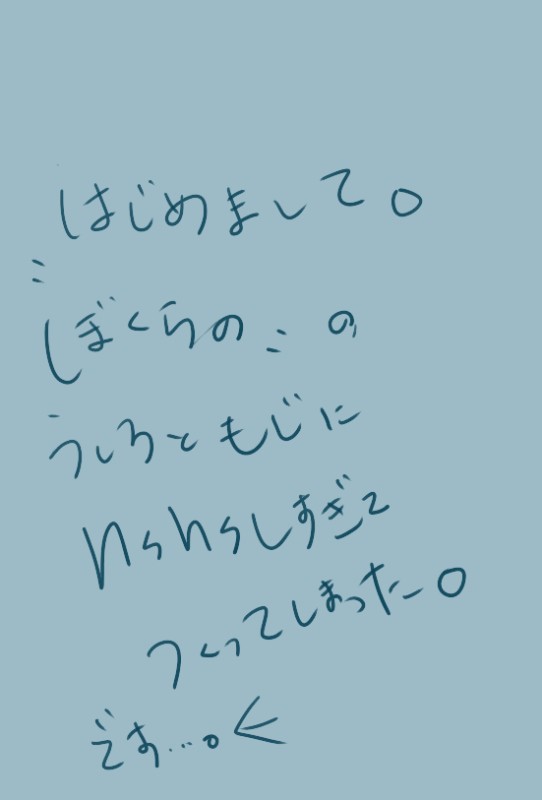 はじめまして。
〝ぼくらの〟の
うしろともじに
hshsしすぎて
つくってしまった。
です…。